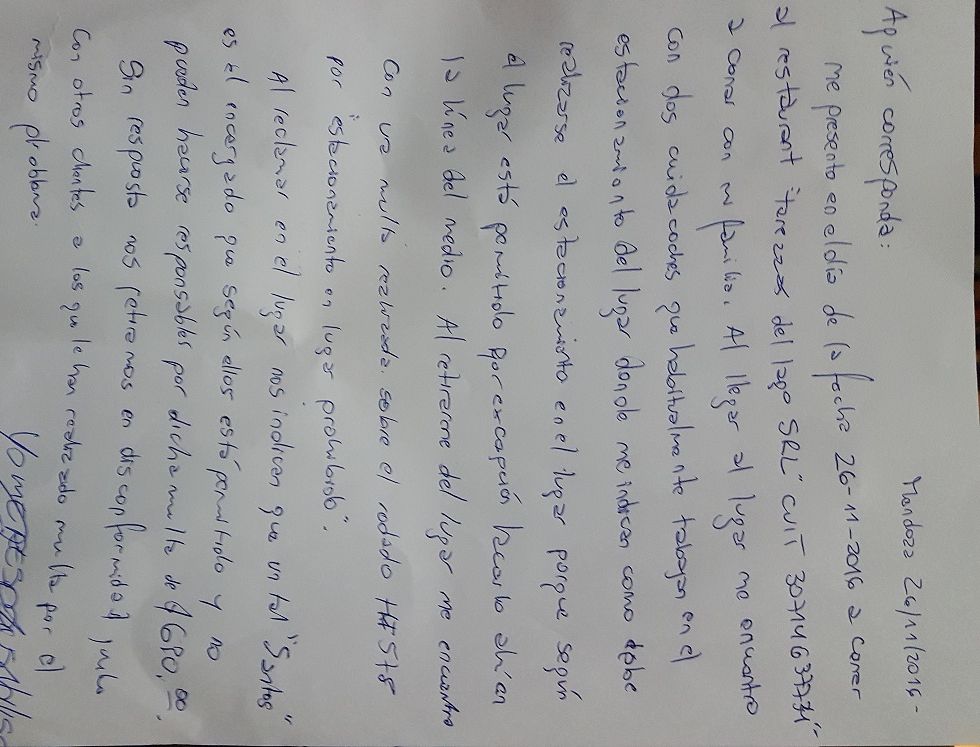 Mendoza 26/11/2016-
A quién corresponda:
me presento en el día de la fecha 26-11-2016 a comer
al restaurant "terrazas del lago SRL" CUIT 30714637771-
a comer con mi familia. Al llegar al lugar me encuentro
con dos cuidacoches que habitualmente trabajan en el
estacionamiento del lugar donde me indican como debe
realizarse el estacionamiento en el lugar porque según
el lugar está permitido por excepción hacerlo ahí en
la línea del medio. Al retirarme del lugar me encuentro
con una multa realizada sobre el rodado
por "estacionamiento en lugar prohibido".
Al reclamar en el lugar nos indican que un tal "Santos"
es el encargado que según ellos está permitido y no
pueden hacerse responsables por dicha multa de $680,00.
Sin respuesta nos retiramos en disconformidad junto
con otros clientes a los que le han realizado multa por el
mismo problema.